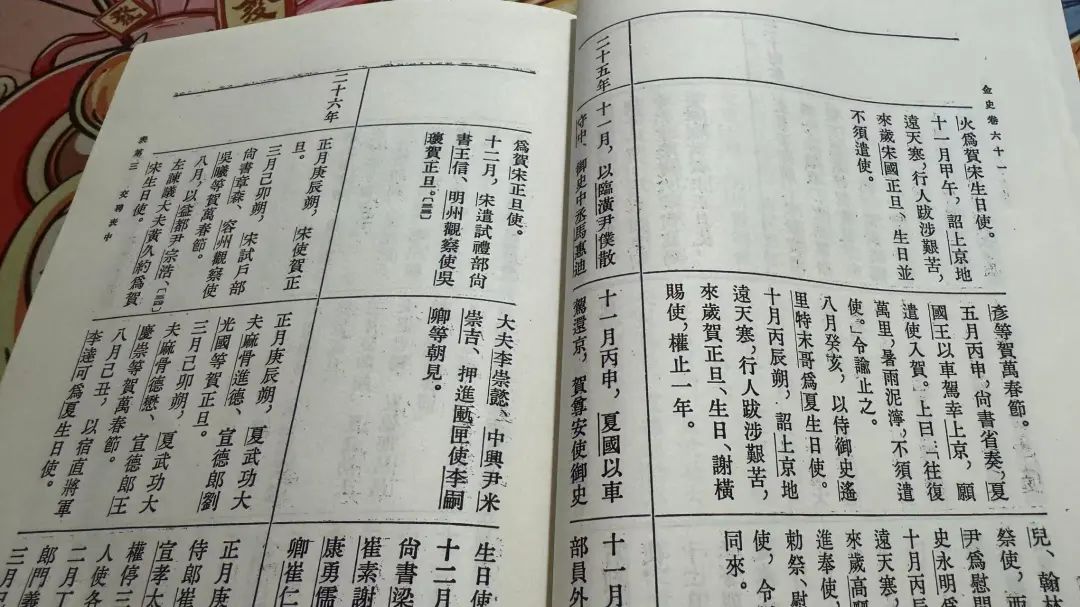 金史卷六十一
火爲賀宋生日使。
十一月甲午，詔上京地
遠天寒，行人跋涉艱苦，
來歲宋國正旦、生日並
不須遣使。
二十五年
十一月，以臨潢尹僕散
守中、御史中丞馬惠迪
彥等賀萬春節。
五月丙申，尚書省奏，夏
國王以車駕幸上京，願
遣使入賀。上曰：「往復
萬里，暑雨泥濘，不須遣
使。」令諭止之。
八月癸亥，以侍御史遙
里特末哥爲夏生日使。
十月丙辰朔，詔上京地
遠天寒，行人跋涉艱苦，
來歲賀正旦、生日、謝橫
賜使，權止一年。
十一月丙申，夏國以車
駕還京，賀尊安使御史
兒、翰林
祭使，西
尹爲慰問
史永明爲
十月丙
遠天寒，
來歲高
進奉使，
勅祭、慰
使，令
同來。
十一月
部員外
爲賀宋正旦使。
十二月，宋遣試禮部尚
書王信、明州觀察使吳
瓌賀正旦。〔三三〕
二十六年
正月庚辰朔，宋使賀正
旦。
三月己卯朔，宋試戶部
尚書章森、容州觀察使
吳曦等賀萬春節。
八月，以益都尹宗浩、〔三四〕
左諫議大夫黃久約爲賀
宋生日使。
表第三 交聘表中
大夫李崇懿、中興尹米
崇吉、押進匭匣使李嗣
卿等朝見。
正月庚辰朔，夏武功大
夫麻骨進德、宣德郎劉
光國等賀正旦。
三月己卯朔，夏武功大
夫麻骨德懋、宣德郎王
慶崇等賀萬春節。
八月己丑，以宿直將軍
李達可爲夏生日使。
生日使
十二月
尚書梁
崔素謝
康勇儒
卿崔仁
正月庚
侍郎崔
宣孝太
權停三
人使各
二月丁
郎門義
三月己